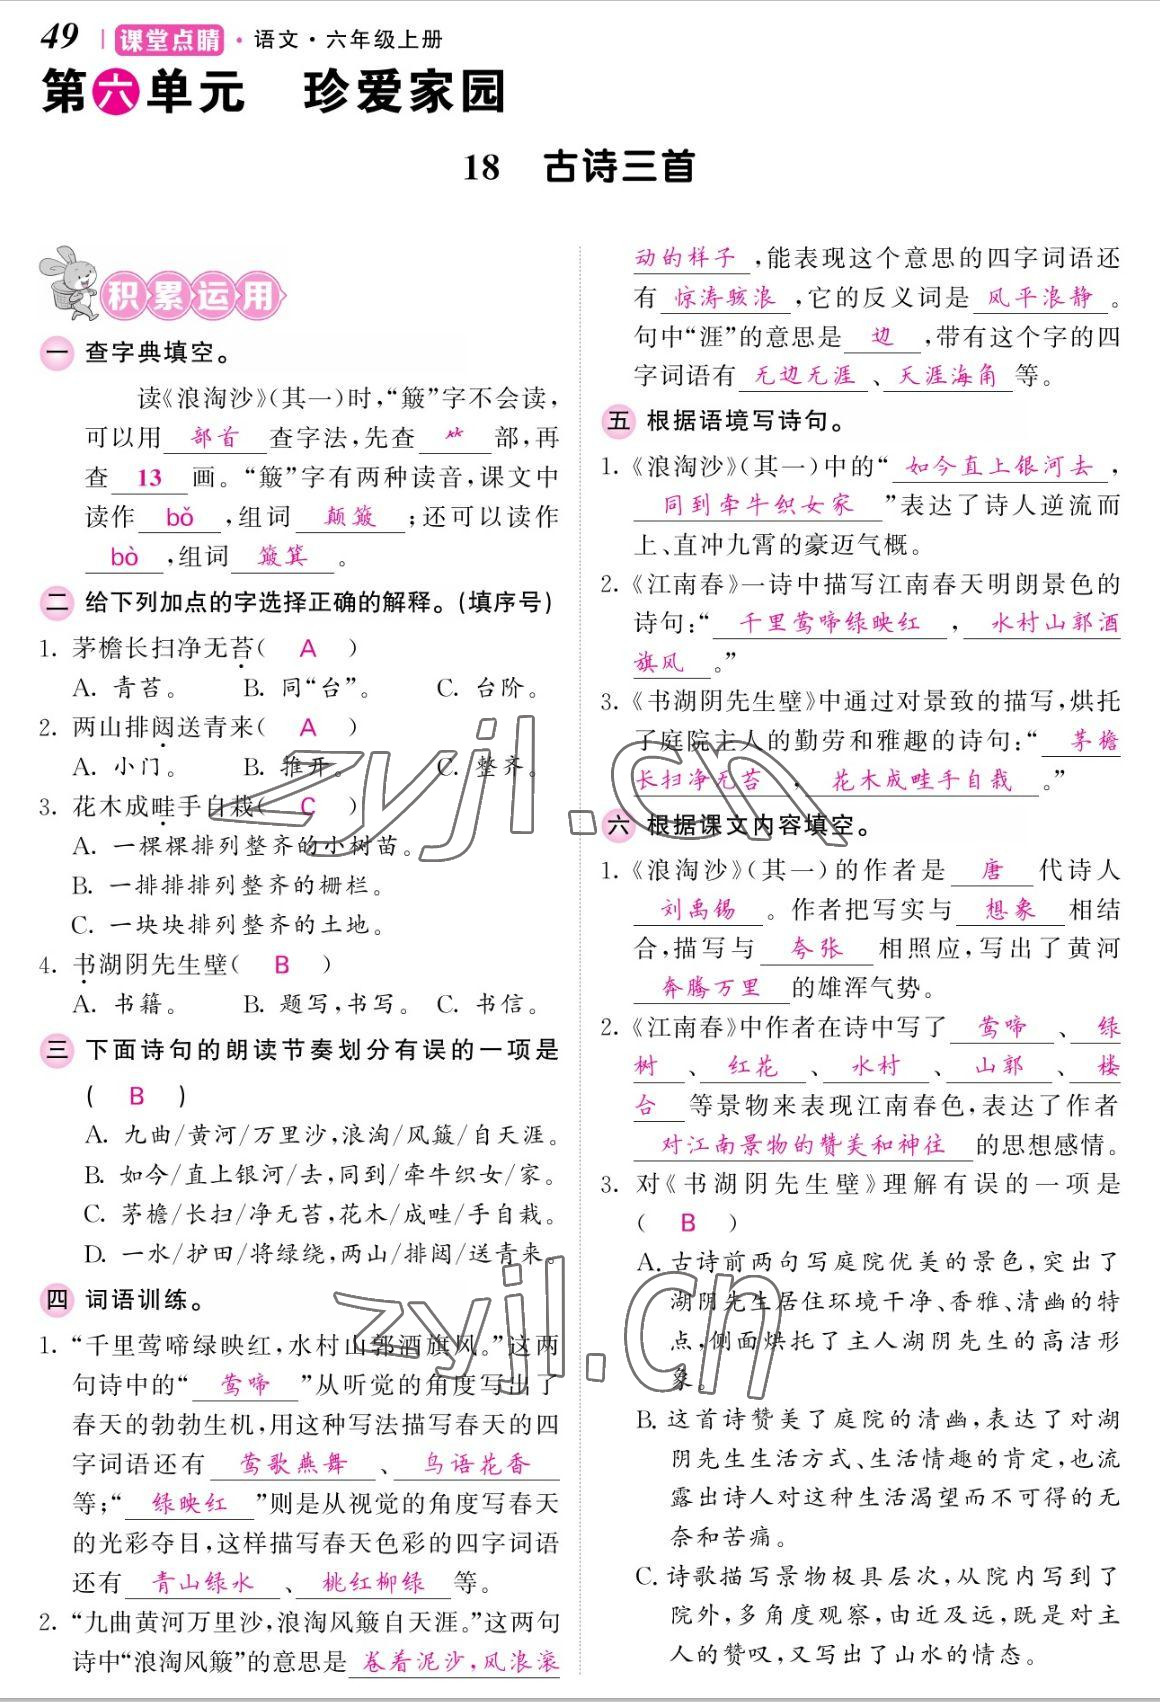 49 课堂点睛·语文·六年级上册
第六单元 珍爱家园
18 古诗三首
积累运用
一 查字典填空。
读《浪淘沙》(其一)时,“簸”字不会读,
可以用 部首 查字法,先查 ⺮ 部,再
查 13 画。“簸”字有两种读音,课文中
读作 bǒ ,组词 颠簸 ;还可以读作
bò ,组词 簸箕 。
二 给下列加点的字选择正确的解释。(填序号)
1. 茅檐长扫净无苔( A )
A. 青苔。 B. 同“台”。 C. 台阶。
2. 两山排闼送青来( A )
A. 小门。 B. 推开。 C. 整齐。
3. 花木成畦手自栽( C )
A. 一棵棵排列整齐的小树苗。
B. 一排排排列整齐的栅栏。
C. 一块块排列整齐的土地。
4. 书湖阴先生壁( B )
A. 书籍。 B. 题写,书写。 C. 书信。
三 下面诗句的朗读节奏划分有误的一项是
( B )
A. 九曲/黄河/万里沙,浪淘/风簸/自天涯。
B. 如今/直上银河/去,同到/牵牛织女/家。
C. 茅檐/长扫/净无苔,花木/成畦/手自栽。
D. 一水/护田/将绿绕,两山/排闼/送青来。
四 词语训练。
1. “千里莺啼绿映红,水村山郭酒旗风。”这两
句诗中的“ 莺啼 ”从听觉的角度写出了
春天的勃勃生机,用这种写法描写春天的四
字词语还有 莺歌燕舞 、 鸟语花香
等;“ 绿映红 ”则是从视觉的角度写春天
的光彩夺目,这样描写春天色彩的四字词语
还有 青山绿水 、 桃红柳绿 等。
2. “九曲黄河万里沙,浪淘风簸自天涯。”这两句
诗中“浪淘风簸”的意思是 卷着泥沙,风浪滚
动的样子 ,能表现这个意思的四字词语还
有 惊涛骇浪 ,它的反义词是 风平浪静 。
句中“涯”的意思是 边 ,带有这个字的四
字词语有 无边无涯 、天涯海角 等。
五 根据语境写诗句。
1.《浪淘沙》(其一)中的“ 如今直上银河去 ,
同到牵牛织女家 ”表达了诗人逆流而
上、直冲九霄的豪迈气概。
2.《江南春》一诗中描写江南春天明朗景色的
诗句:“ 千里莺啼绿映红 , 水村山郭酒
旗风 。”
3.《书湖阴先生壁》中通过对景致的描写,烘托
了庭院主人的勤劳和雅趣的诗句:“ 茅檐
长扫净无苔 , 花木成畦手自栽 。”
六 根据课文内容填空。
1.《浪淘沙》(其一)的作者是 唐 代诗人
刘禹锡 。作者把写实与 想象 相结
合,描写与 夸张 相照应,写出了黄河
奔腾万里 的雄浑气势。
2.《江南春》中作者在诗中写了 莺啼 、 绿
树 、 红花 、 水村 、 山郭 、 楼
台 等景物来表现江南春色,表达了作者
对江南景物的赞美和神往 的思想感情。
3. 对《书湖阴先生壁》理解有误的一项是
( B )
A. 古诗前两句写庭院优美的景色,突出了
湖阴先生居住环境干净、香雅、清幽的特
点,侧面烘托了主人湖阴先生的高洁形
象。
B. 这首诗赞美了庭院的清幽,表达了对湖
阴先生生活方式、生活情趣的肯定,也流
露出诗人对这种生活渴望而不可得的无
奈和苦痛。
C. 诗歌描写景物极具层次,从院内写到了
院外,多角度观察,由近及远,既是对主
人的赞叹,又写出了山水的情态。
zyjl.cn
zyjl.cn